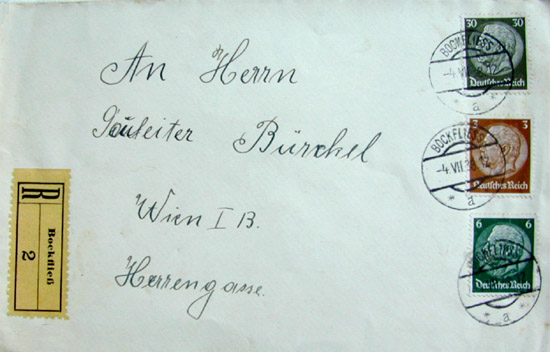 An Herrn
Gauleiter Bürckel
Wien I B.
Herrengasse.
R
Bockfließ
2
30 30
Deutsches Reich
BOCKFLIESS
-4.VII.38.12
* a *
3 3
Deutsches Reich
BOCKFLIESS
-4.VII.38.12
* a *
6 6
Deutsches Reich
BOCKFLIESS
* a *